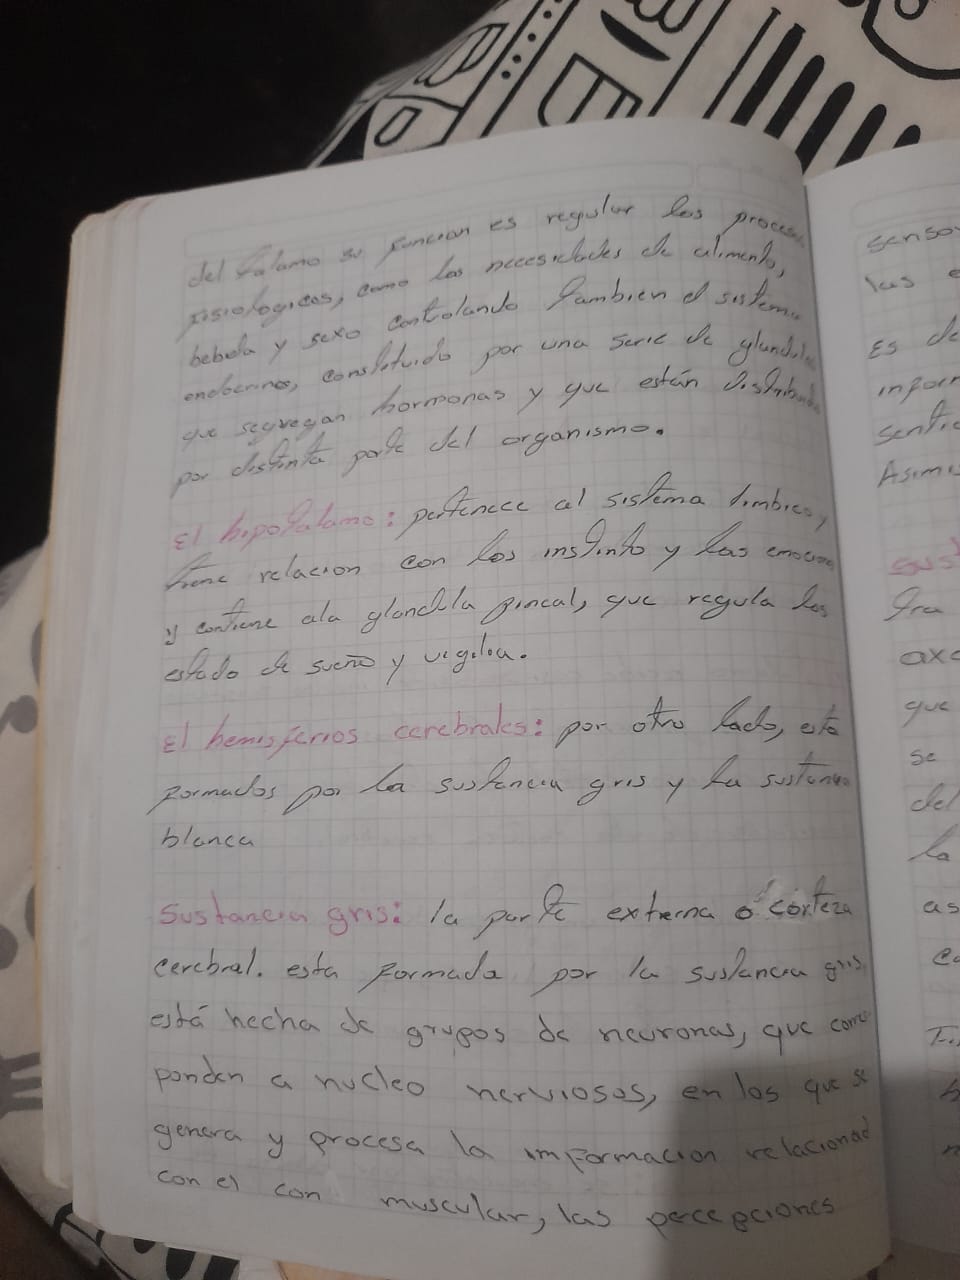 del talamo su funcion es regular los procesos
fisiologicos, como las necesidades de alimento,
bebida y sexo controlando tambien el sistema
endocrinos, constituido por una serie de glandulas
que segregan hormonas y que están distribuidas
por distinta parte del organismo.
El hipotalamo: pertenece al sistema limbico y
tiene relacion con los instinto y las emociones
y contiene ala glandula pineal, que regula los
estado de sueño y vigilia.
El hemisferios cerebrales: por otro lado, esta
formados por la sustancia gris y la sustancia
blanca
Sustancia gris: la parte externa o corteza
cerebral. esta formada por la sustancia gris
está hecha de grupos de neuronas, que corres
ponden a nucleo nerviosos, en los que se
genera y procesa la imformacion relacionad
con el con muscular, las percepciones
senso
las
Es de
infor
sentic
Asimis
sust
tra
axo
que
se
del
la
as